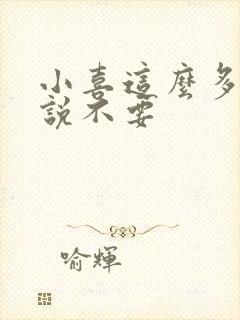 小喜這麼多
說不要
喻輝